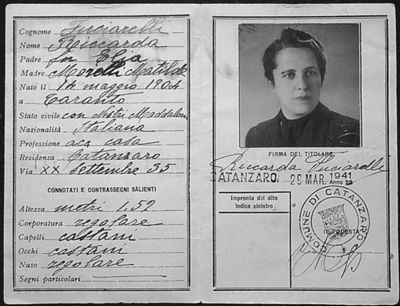 Cognome Fuciarelli
Nome Riccarda
Padre fu Elia
Madre Morelli Matilde
Nato il 14 maggio 1904
a Taranto
Stato civile con Mistri
Nazionalità Italiana
Professione acc casa
Residenza Catanzaro
Via XX Settembre 55
CONNOTATI E CONTRASSEGNI SALIENTI
Altezza metri 1.52
Corporatura regolare
Capelli castani
Occhi castani
Naso regolare
Segni particolari
FIRMA DEL TITOLARE
Riccarda Fuciarelli
CATANZARO, 29 MAR. 1941 Anno
Impronta del dito
indice sinistro.
COMUNE DI CATANZARO
IL PODESTÀ